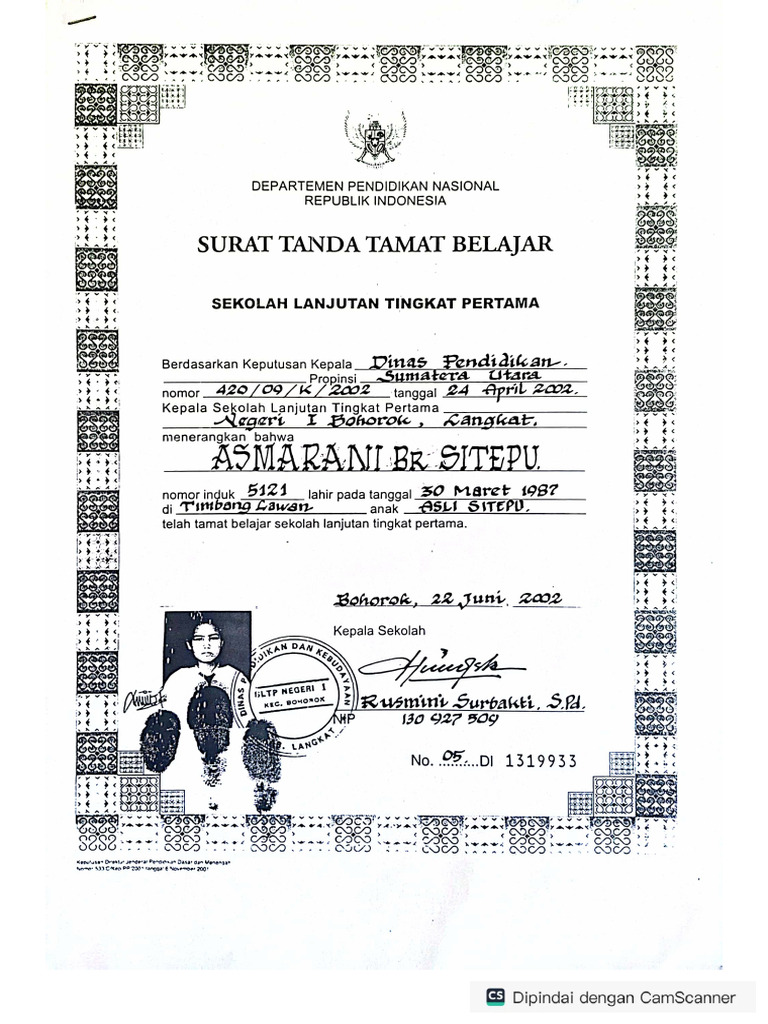 DEPARTEMEN PENDIDIKAN NASIONAL
REPUBLIK INDONESIA
SURAT TANDA TAMAT BELAJAR
SEKOLAH LANJUTAN TINGKAT PERTAMA
Berdasarkan Keputusan Kepala Dinas Pendidikan.
Propinsi Sumatera Utara
nomor 420/09/K/2002 tanggal 24 April 2002.
Kepala Sekolah Lanjutan Tingkat Pertama
Negeri I Bohorok, Langkat.
menerangkan bahwa
ASMARANI BR SITEPU.
nomor induk 5121 lahir pada tanggal 30 Maret 1987
di Timbang Lawan anak ASLI SITEPU.
telah tamat belajar sekolah lanjutan tingkat pertama.
Bohorok, 22 Juni 2002
Kepala Sekolah
DINAS PENDIDIKAN DAN KEBUDAYAAN
SLTP NEGERI I
KEC. BOHOROK
KAB. LANGKAT
Rusmini Surbakti, S.Pd.
NIP 130 927 509
No. 05 DI 1319933
Keputusan Direktur Jenderal Pendidikan Dasar dan Menengah
Nomor 2001 tanggal 6 November 2001
CS Dipindai dengan CamScanner